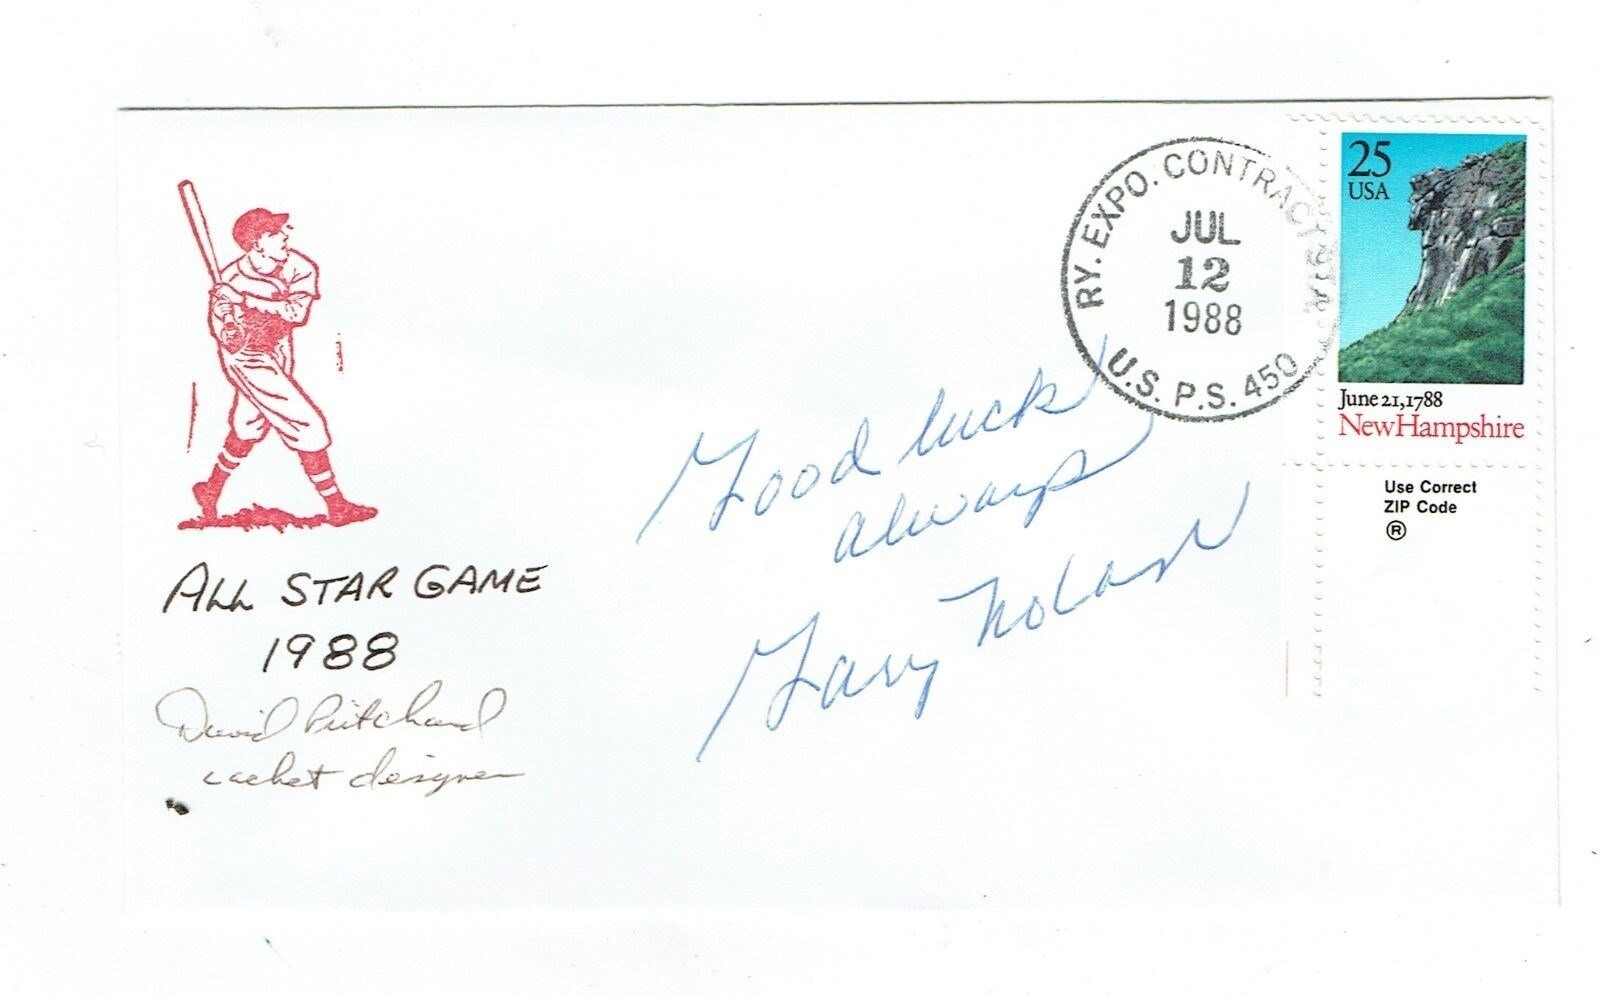 RY. EXPO. CONTRACT STA
JUL
12
1988
U.S.P.S. 450
25
USA
June 21, 1788
New Hampshire
Use Correct
ZIP Code
®
Good luck
always
Gary Nolan
ALL STAR GAME
1988
David Pritchard
cachet designer